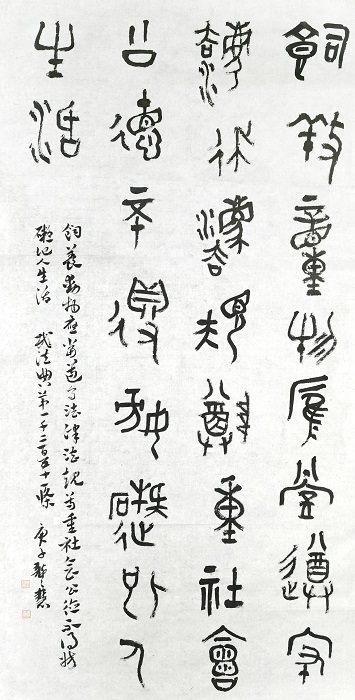 飼養動物應當遵守
法律法規尊重社會
公德不得妨礙他人
生活
飼養動物應當遵守法律法規尊重社會公德不得妨
礙他人生活 民法典第一千二百五十一條 庚子